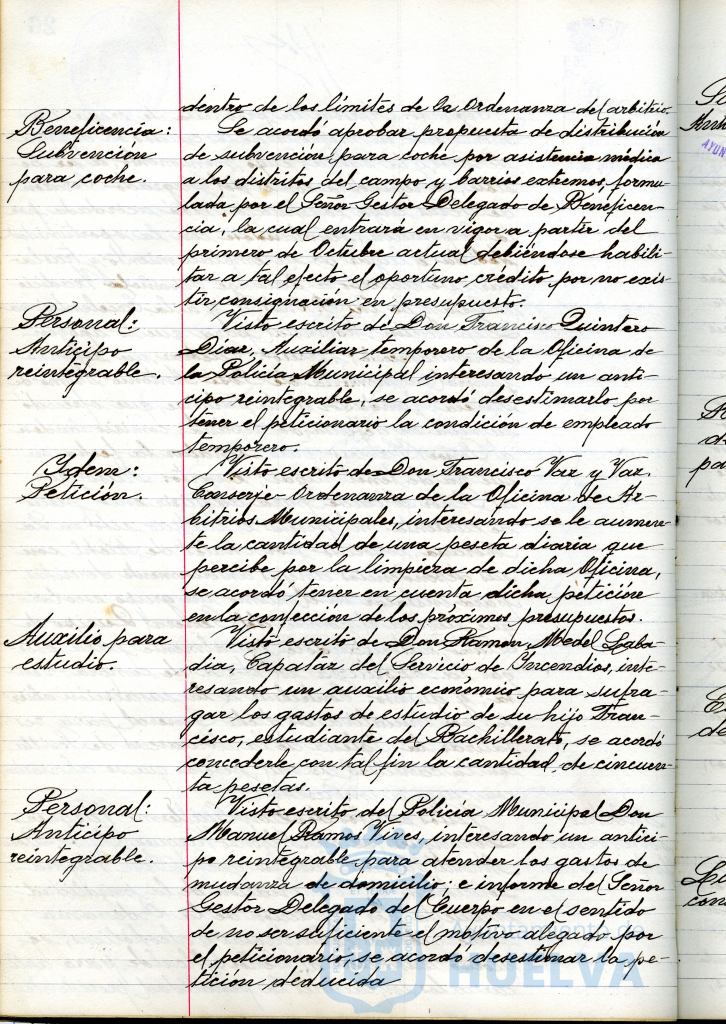 dentro de los límites de la Ordenanza del arbitrio.
Beneficencia:
Subvención
para coche.
Se acordó aprobar propuesta de distribución
de subvención para coche por asistencia médica
a los distritos del campo y barrios extremos, formu-
lada por el Señor Gestor Delegado de Beneficen-
cia, la cual entrará en vigor a partir del
primero de Octubre actual debiéndose habili-
tar a tal efecto el oportuno crédito por no exis-
tir consignación en presupuesto.
Personal:
Anticipo
reintegrable.
Visto escrito de Don Francisco Quintero
Díaz, Auxiliar temporero de la Oficina de
la Policía Municipal interesando un anti-
cipo reintegrable, se acordó desestimarlo por
tener el peticionario la condición de empleado
temporero.
Idem:
Petición.
Visto escrito de Don Francisco Vaz y Vaz,
Conserje-Ordenanza de la Oficina de Ar-
bitrios Municipales, interesando se le aumen-
te la cantidad de una peseta diaria que
percibe por la limpieza de dicha Oficina,
se acordó tener en cuenta dicha petición
en la confección de los próximos presupuestos.
Auxilio para
estudio.
Visto escrito de Don Ramon Medel Laba-
dia, Capataz del Servicio de Incendios, inte-
resando un auxilio económico para sufra-
gar los gastos de estudio de su hijo Fran-
cisco, estudiante del Bachillerato, se acordó
concederle con tal fin la cantidad de cincuen-
ta pesetas.
Personal:
Anticipo
reintegrable.
Visto escrito del Policía Municipal Don
Manuel Ramos Vives, interesando un antici-
po reintegrable para atender los gastos de
mudanza de domicilio; e informe del Señor
Gestor Delegado del Cuerpo en el sentido
de no ser suficiente el motivo alegado por
el peticionario, se acordó desestimar la pe-
tición deducida
Ayuntamiento de
HUELVA